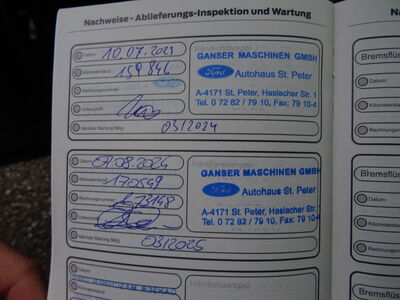 Nachweise - Ablieferungs-Inspektion und Wartung
Datum 10.07.2023
Kilometerstand 159 846
Rechnungsnummer
Unterschrift
Nächste Wartung fällig 03/2024
Händlerstempel
GANSER MASCHINEN GMBH
Ford Autohaus St. Peter
A-4171 St. Peter, Haslacher Str. 1
Tel. 0 72 82 / 79 10, Fax: 79 10-4
Datum 07.08.2024
Kilometerstand 170549
Rechnungsnummer
Unterschrift
Nächste Wartung fällig 03/2025
Händlerstempel
GANSER MASCHINEN GMBH
Ford Autohaus St. Peter
A-4171 St. Peter, Haslacher Str. 1
Tel. 0 72 82 / 79 10, Fax: 79 10-4
Datum
Kilometerstand
Händlerstempel
Nachweise
Bremsflüs
Datum
Kilometerstand
Rechnungsnum
Bremsflüs
Datum
Kilometerstand
Rechnungsnum
Bremsflüs